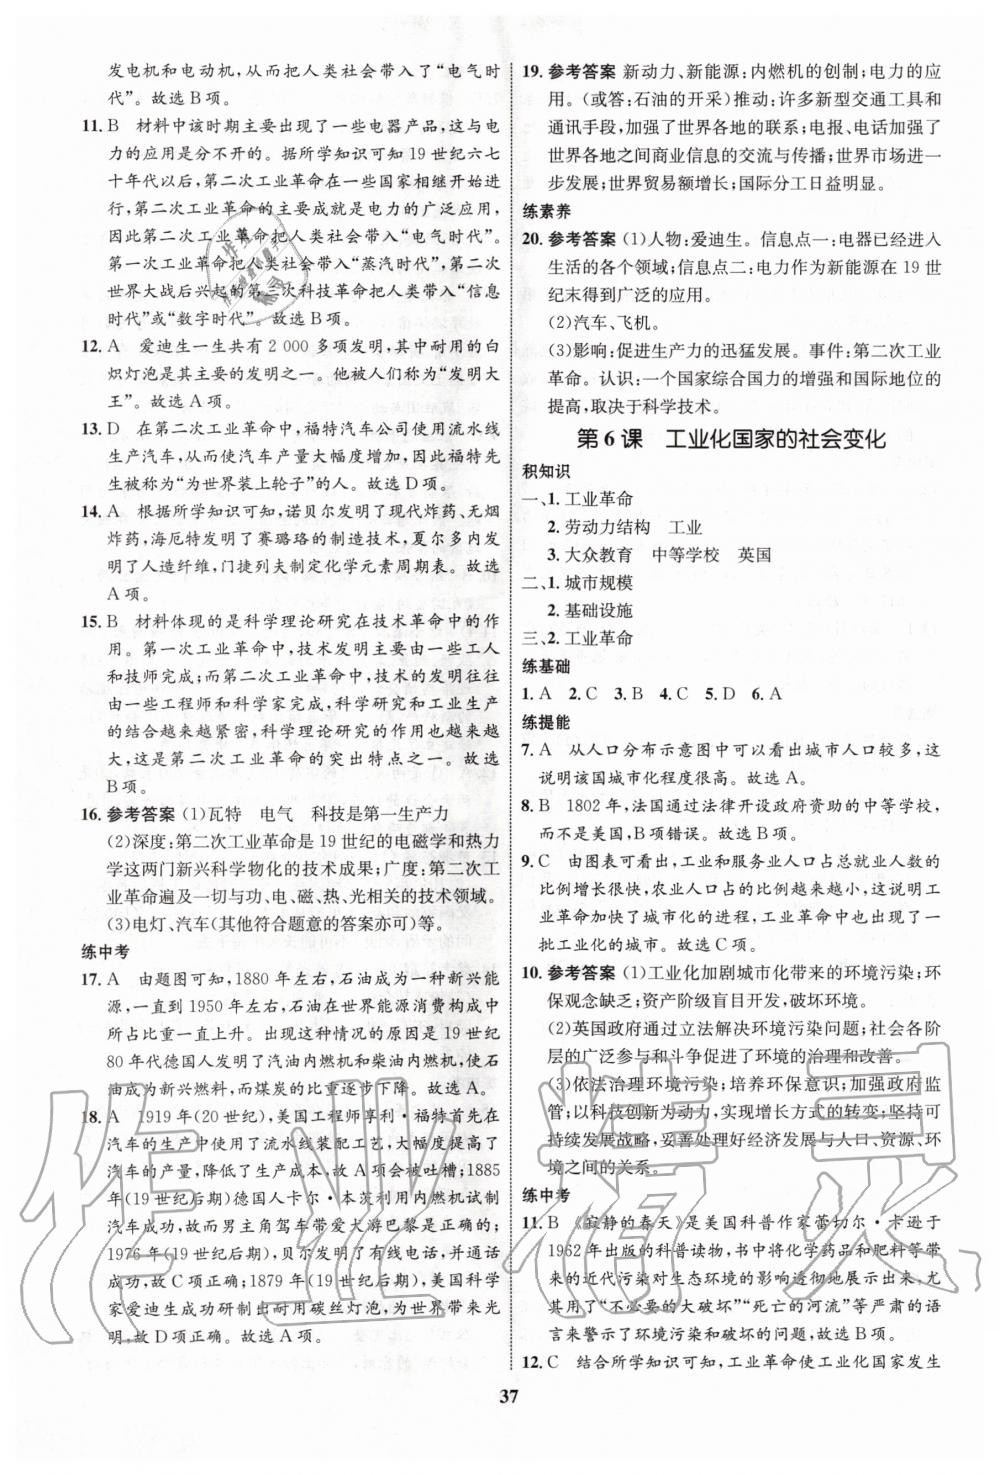 发电机和电动机,从而把人类社会带入了“电气时
代”。故选 B 项。
11. B　材料中该时期主要出现了一些电器产品,这与电
力的应用是分不开的。据所学知识可知 19 世纪六七
十年代以后,第二次工业革命在一些国家相继开始进
行,第二次工业革命的主要成就是电力的广泛应用,
因此第二次工业革命把人类社会带入“电气时代”。
第一次工业革命把人类社会带入“蒸汽时代”。第二次
世界大战后兴起的第三次科技革命把人类带入“信息
时代”或“数字时代”。故选 B 项。
12. A　爱迪生一生共有 2 000 多项发明,其中耐用的白
炽灯泡是其主要的发明之一。他被人们称为“发明大
王”。故选 A 项。
13. D　在第二次工业革命中,福特汽车公司使用流水线
生产汽车,从而使汽车产量大幅度增加,因此福特先
生被称为“为世界装上轮子”的人。故选 D 项。
14. A　根据所学知识可知,诺贝尔发明了现代炸药、无烟
炸药,海厄特发明了赛璐珞的制造技术,夏尔多内发
明了人造纤维,门捷列夫制定化学元素周期表。故选
A 项。
15. B　材料体现的是科学理论研究在技术革命中的作
用。第一次工业革命中,技术发明主要由一些工人
和技师完成;而第二次工业革命中,技术的发明往往
由一些工程师和科学家完成,科学研究和工业生产
的结合越来越紧密,科学理论研究的作用也越来越
大,这是第二次工业革命的突出特点之一。故选
B 项。
16. 参考答案　(1)瓦特　电气　科技是第一生产力
(2)深度:第二次工业革命是 19 世纪的电磁学和热力
学这两门新兴科学物化的技术成果;广度:第二次工
业革命遍及一切与功、电、磁、热、光相关的技术领域。
(3)电灯、汽车(其他符合题意的答案亦可)等。
练中考
17. A　由题图可知,1880 年左右,石油成为一种新兴能
源,一直到 1950 年左右,石油在世界能源消费构成中
所占比重一直上升。出现这种情况的原因是 19 世纪
80 年代德国人发明了汽油内燃机和柴油内燃机,使石
油成为新兴燃料,而煤炭的比重逐步下降。故选 A。
18. A　1919 年(20 世纪),美国工程师亨利·福特首先在
汽车的生产中使用了流水线装配工艺,大幅度提高了
汽车的产量,降低了生产成本,故 A 项会被吐槽;1885
年(19 世纪后期)德国人卡尔·本茨利用内燃机试制
汽车成功,故而男主角驾车带爱犬游巴黎是正确的;
1976 年(19 世纪后期),贝尔发明了有线电话,并通话
成功,故 C 项正确;1879 年(19 世纪后期),美国科学
家爱迪生成功研制出耐用碳丝灯泡,为世界带来光
明,故 D 项正确。故选 A 项。
19. 参考答案　新动力、新能源:内燃机的创制;电力的应
用。(或答:石油的开采)推动:许多新型交通工具和
通讯手段,加强了世界各地的联系;电报、电话加强了
世界各地之间商业信息的交流与传播;世界市场进一
步发展;世界贸易额增长;国际分工日益明显。
练素养
20. 参考答案　(1)人物:爱迪生。信息点一:电器已经进入
生活的各个领域;信息点二:电力作为新能源在 19 世
纪末得到广泛的应用。
(2)汽车、飞机。
(3)影响:促进生产力的迅猛发展。事件:第二次工业
革命。认识:一个国家综合国力的增强和国际地位的
提高,取决于科学技术。
第 6 课　工业化国家的社会变化
积知识
一、1. 工业革命
2. 劳动力结构　工业
3. 大众教育　中等学校　英国
二、1. 城市规模
2. 基础设施
三、2. 工业革命
练基础
1. A　2. C　3. B　4. C　5. D　6. A
练提能
7. A　从人口分布示意图中可以看出城市人口较多,这
说明该国城市化程度很高。故选 A。
8. B　1802 年,法国通过法律开设政府资助的中等学校,
而不是美国,B 项错误。故选 B 项。
9. C　由图表可看出,工业和服务业人口占总就业人数的
比例增长很快,农业人口占的比例越来越小,这说明工
业革命加快了城市化的进程,工业革命中也出现了一
批工业化的城市。故选 C 项。
10. 参考答案　(1)工业化加剧城市化带来的环境污染;环
保观念缺乏;资产阶级盲目开发,破坏环境。
(2)英国政府通过立法解决环境污染问题;社会各阶
层的广泛参与和斗争促进了环境的治理和改善。
(3)依法治理环境污染;培养环保意识;加强政府监
管;以科技创新为动力,实现增长方式的转变;坚持可
持续发展战略,妥善处理好经济发展与人口、资源、环
境之间的关系。
练中考
11. B　《寂静的春天》是美国科普作家蕾切尔·卡逊于
1962 年出版的科普读物,书中将化学药品和肥料等带
来的近代污染对生态环境的影响透彻地展示出来,尤
其用了“不必要的大破坏”“死亡的河流”等严肃的语
言来警示了环境污染和破坏的问题,故选 B 项。
12. C　结合所学知识可知,工业革命使工业化国家发生
37
作业精灵